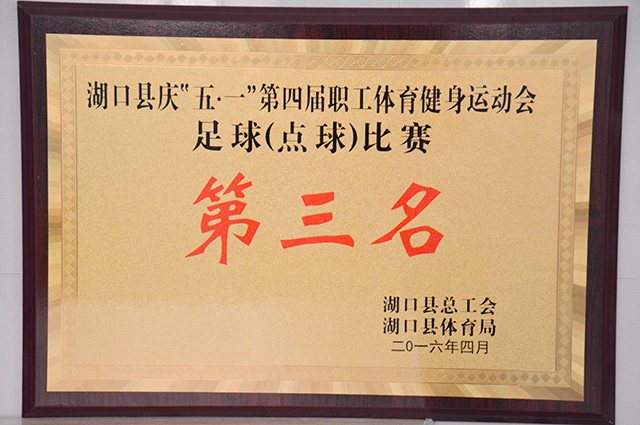 湖口县庆“五·一”第四届职工体育健身运动会
足球(点球)比赛
第三名
湖口县总工会
湖口县体育局
二0一六年四月